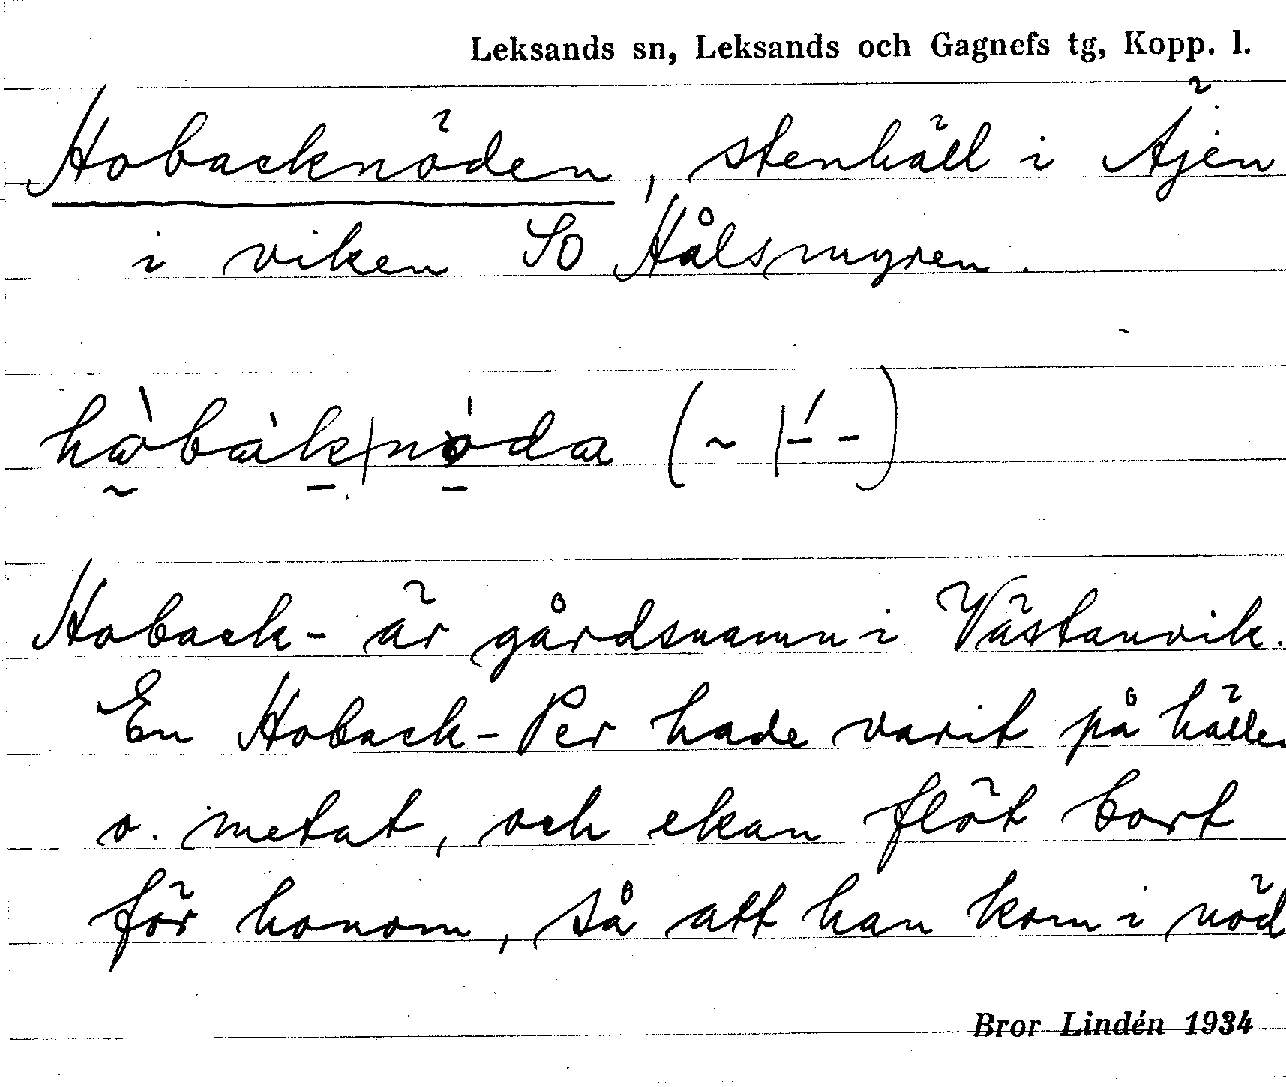 Leksands sn, Leksands och Gagnefs tg, Kopp. l.
Hobacknöden, stenhäll i Äjen
i viken SO Hålsmyren.
Hoback- är gårdsnamn i Västanvik.
En Hoback-Per hade varit på hällen
o. metat, och ekan flöt bort
för honom, så att han kom i nöd
Bror Lindén 1934